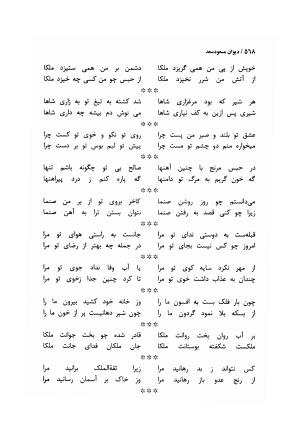 ۵۶۸ / دیوان مسعودسعد
خویش از پی من همی گریزد ملکا دشمن بر من همی ستیزد ملکا
از آتش من شرر نخیزد ملکا از حبس چو من کسی چه خیزد ملکا
***
هر گه که بود مرغزاری شاها شد کشته به تیغ تو به زاری شاها
شیری پس ازین به کف نیاری شاها می نوش دم بیشه چه داری شاها
***
عشق تو بلند و صبر من پست چرا روی تو نکو و خوی تو کست چرا
میخواره منم دو چشم تو مست چرا پیش تو لیم بوس تو بر دست چرا
***
در حبس مرنج با چنین آهنها صالح بی تو چگونه باشم تنها
گه خون گریم به مرگ تو دامنها گه پاره کنم ز درد پیراهنها
***
می‌دانستم چو روز روشن صنما کاخر بروی تو از بر من صنما
زیرا چو کنی قصد به رفتن صنما نتوان بستن ترا به آهن صنما
***
قبله‌ست به دوستی ندای تو مرا جانست به راستی هوای تو مرا
امروز چو کس نیست بجای تو مرا در جمله چه بهتر از رضای تو مرا
***
از مهر نکرد سایه کوی تو مرا یا آب وفا نداد جوی تو مرا
چندان به عذاب داشت خوی تو مرا تا کرد چنین جدا زخوی تو مرا
***
چون بار فلک بست به افسون ما را وز خانه خود کشید بیرون ما را
از بسکه بلا نمود گردون ما را چون شیر دهانیست پر از خون ما را
***
بر آب روان بخت روانت ملکا قادر شده چو بخت جوانت ملکا
ملکست شکفته بوستانت ملکا جان ملکان فدای جانت ملکا
***
کس نتواند ز بد رهانید مرا زیرا ثقةالملک برانید مرا
از رنج عدو باز رهانید مرا وز خاک بر آسمان رسانید مرا
***